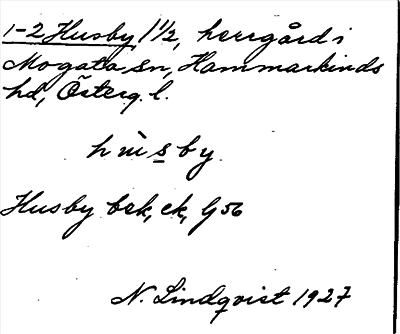 1-2 Husby, 1 1/2, herrgård i
Mogata sn, Hammarkinds
hd, Österg. l.
Husby bek, ek, G 56
N. Lindqvist 1927